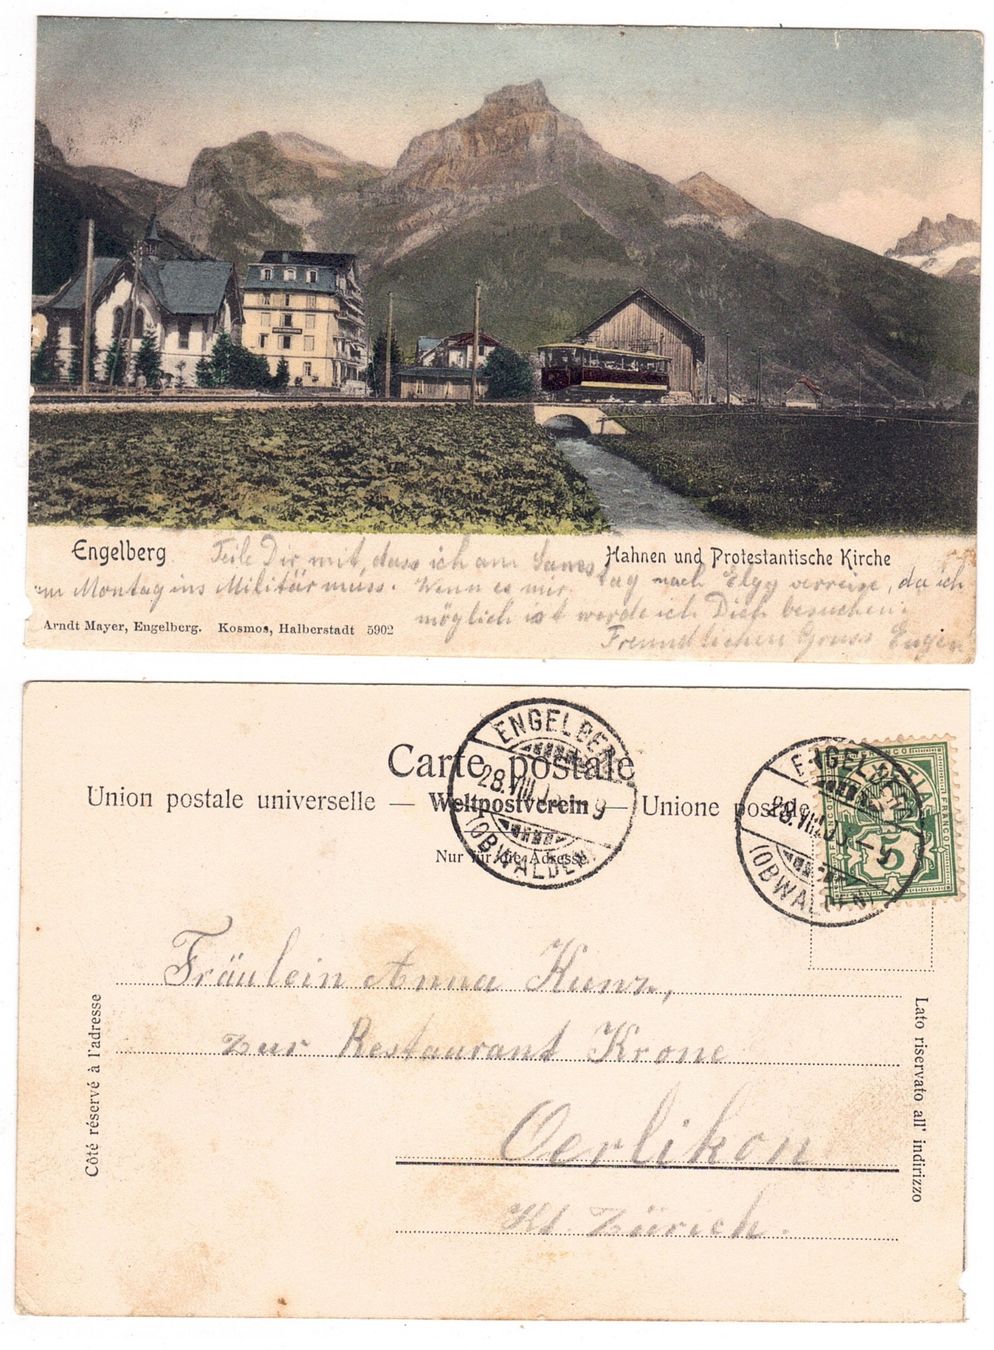 Engelberg
Hahnen und Protestantische Kirche
Teile Dir mit, dass ich am Samstag nach Elgg verreise, da ich
am Montag ins Militär muss. Wenn es mir
möglich ist werde ich Dich besuchen.
Freundlichen Gruss Eugen
Arndt Mayer, Engelberg. Kosmos, Halberstadt 5902
Carte postale
Union postale universelle — Weltpostverein — Unione postale
Nur für die Adresse
ENGELBERG
28.VIII
9
(OBWALDEN)
ENGELBERG
28.VIII
-9
(OBWALDEN)
FRANCO
HELVETIA
FRANCO
5
Fräulein Anna Kunz,
zur Restaurant Krone
Oerlikon
Kt. Zürich.
Côté réservé à l'adresse
Lato riservato all' indirizzo